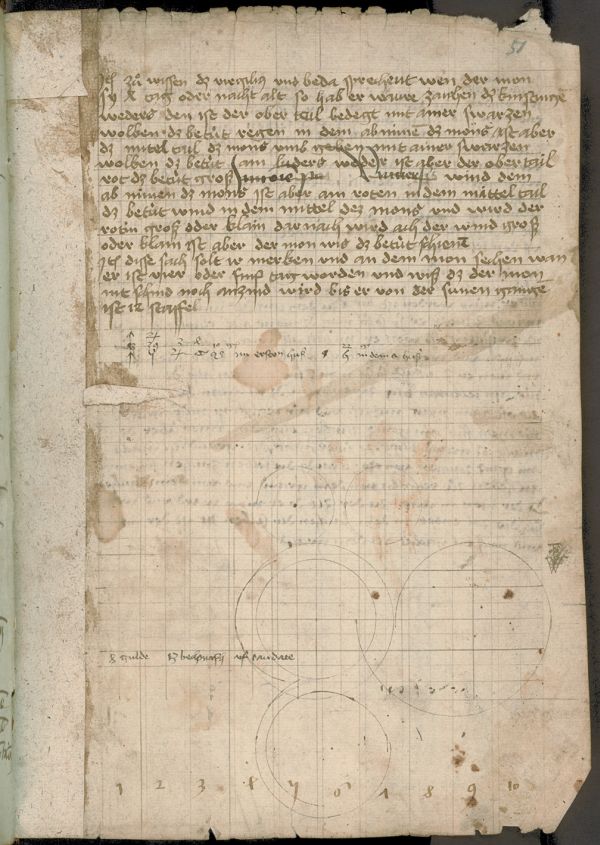 51
Itē zů wissen dz virgilius vnd beda sprechent wen der mon
sy x tag oder nacht alt so hab er ware zaichen dz künftige
weders den ist der ober tail bedegt mit ainer swarzen
wolben dz betüt regen in dem abnime dz mons ist aber
dz mitel tail dz mons vmb geben mit ainer swarzen
wolben dz betüt ain luders weder ist aber der ober tail
rot dz betüt groß wind dem
ab nimen dz mons ist aber am roten in dem mittel tail
dz betüt wind in dem mittel dez mons vnd wird der
rotin groß oder klain dar nach wird ach der wind groß
oder klain ist aber der mon wis dz betüt schiene
Itē disse sach solt ir merken vnd an dem mon sechen wan
er ist vier oder fünf tag worden vnd wiß dz der mon
nit schind noch anzind wird bis er von der sunen gange
ist 12 staffel
im ersten huß
in dem huß
8 gulde
1 2 3 4 5 6 7 8 9 10